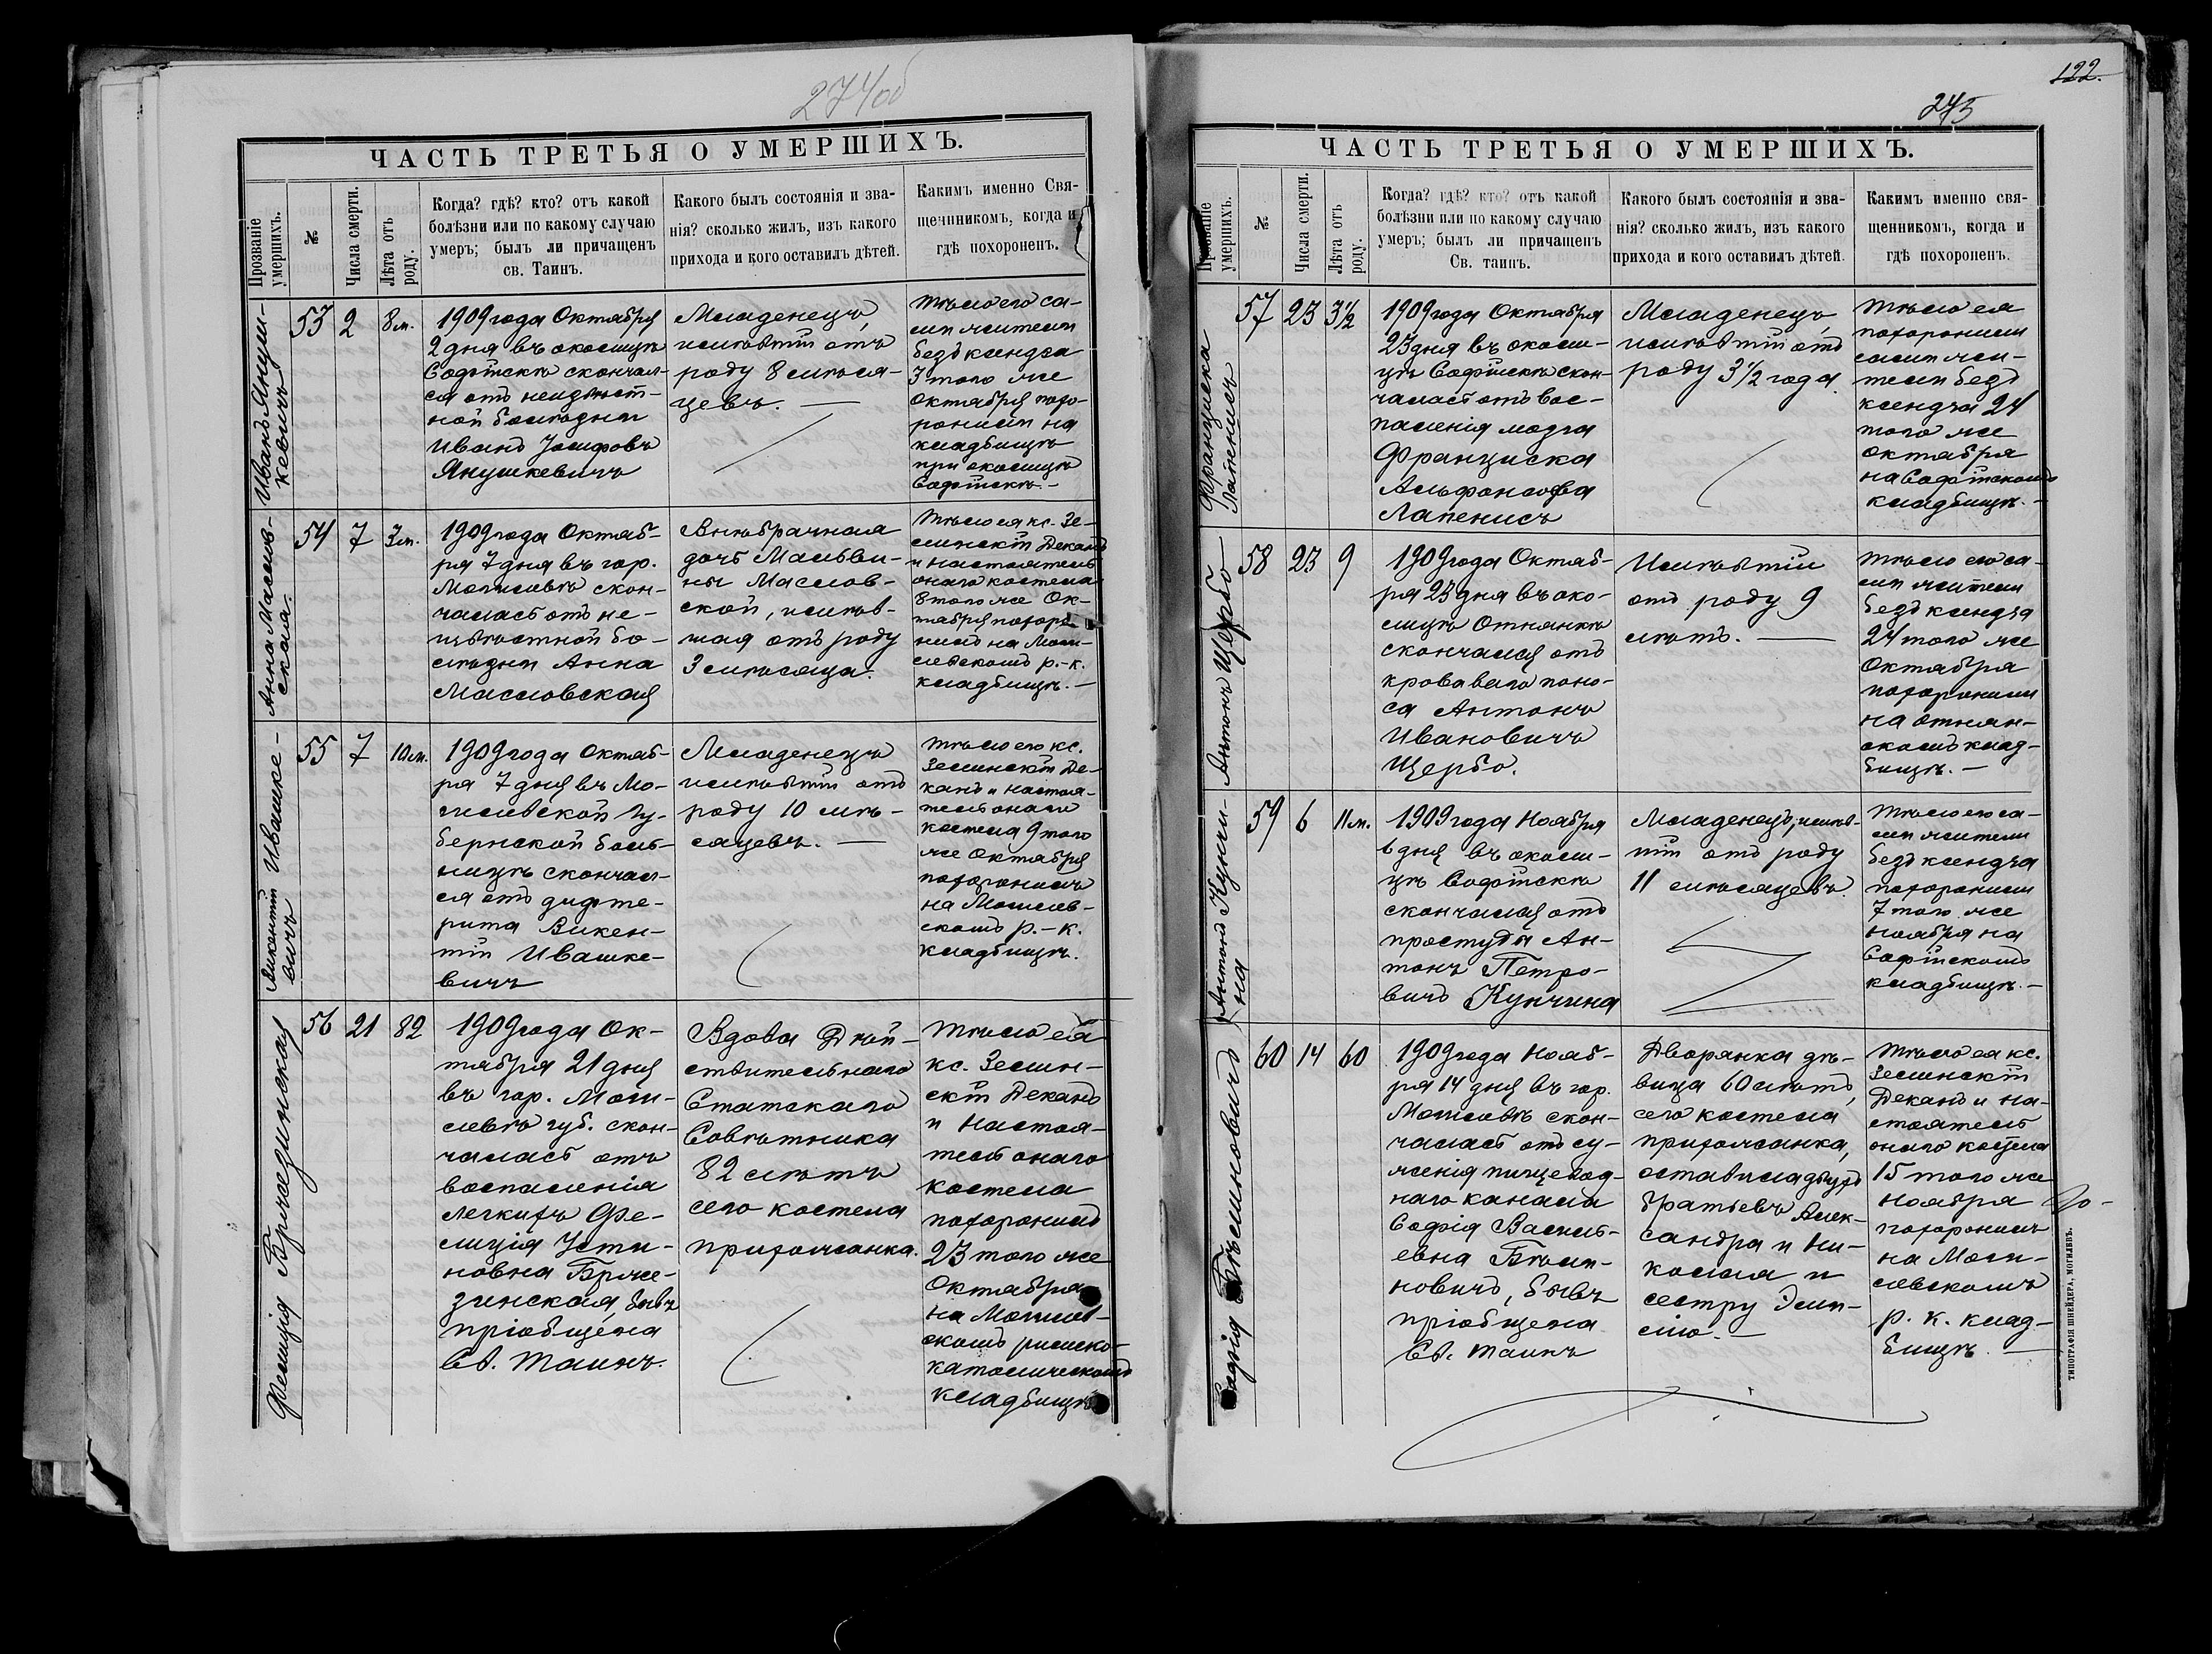 274об
ЧАСТЬ ТРЕТЬЯ О УМЕРШИХЪ.
Прозваніе умершихъ.
№
Числа смерти.
Лѣта отъ роду.
Когда? гдѣ? кто? отъ какой
болѣзни или по какому случаю
умеръ; былъ ли причащенъ
св. Таинъ.
Какого былъ состоянія и зва-
нія? сколько жилъ, изъ какого
прихода и кого оставилъ дѣтей.
Какимъ именно Свя-
щенникомъ, когда и
гдѣ похороненъ.
Иванъ
кевичъ
53
2
8 м.
1909 года Октября
2 дня въ околицѣ
Софійскѣ скончал-
ся отъ неизвѣст-
ной болѣзни
Иванъ Іосифовъ
Янушкевичъ
Младенецъ,
имѣвшій отъ
роду 8 мѣся-
цевъ. —
Тѣло его са-
ми жители
безъ ксендза
3 того же
Октября похо-
ронили на
кладбищѣ
при околицѣ
Софійскѣ. —
Анна Маслов-
ская.
54
7
3 м.
1909 года Октяб-
ря 7 дня въ гор.
Могилевѣ скон-
чалась отъ не-
извѣстной бо-
лѣзни Анна
Масловская
Внѣбрачная
дочь Мальви-
ны Маслов-
ской, имѣв-
шая отъ роду
3 мѣсяца.
Тѣло ея кс. Зе-
линскій Деканъ
и настоятель
онаго костела
8 того же Ок-
тября похоро-
нилъ на Моги-
левскомъ р.-к.
кладбищѣ. —
Викентій Ивашке-
вичъ
55
7
10 м.
1909 года Октяб-
ря 7 дня въ Мо-
гилевской Гу-
бернской боль-
ницѣ скончал-
ся отъ дифте-
рита Викен-
тій Ивашке-
вичъ
Младенецъ
имѣвшій отъ
роду 10 мѣ-
сяцевъ. —
Тѣло его кс.
Зелинскій Де-
канъ и настоя-
тель онаго
костела 9 того
же Октября
похоронилъ
на Могилев-
скомъ р.-к.
кладбищѣ.
Фелиція Бржезинская
56
21
82
1909 года Ок-
тября 21 дня
въ гор. Моги-
левѣ губ. скон-
чалась отъ
воспаленія
легкихъ Фе-
лиція Усти-
новна Брже-
зинская, бывъ
пріобщена
Св. Таинъ.
Вдова Дѣй-
ствительнаго
Статскаго
Совѣтника
82 лѣтъ
сего костела
прихожанка.
Тѣло ея
кс. Зелин-
скій Деканъ
и Настоя-
тель онаго
костела
похоронилъ
23 того же
Октября
на Могилев-
скомъ римско-
католическомъ
кладбищѣ
122.
275
ЧАСТЬ ТРЕТЬЯ О УМЕРШИХЪ.
Прозваніе умершихъ.
№
Числа смерти.
Лѣта отъ роду.
Когда? гдѣ? кто? отъ какой
болѣзни или по какому случаю
умеръ; былъ ли причащенъ
Св. таинъ.
Какого былъ состоянія и зва-
нія? сколько жилъ, изъ какого
прихода и кого оставилъ дѣтей.
Какимъ именно свя-
щенникомъ, когда и
гдѣ похороненъ.
Франциска
Лапенисъ
57
23
3½
1909 года Октября
23 дня въ околи-
цѣ Софійскѣ скон-
чалась отъ вос-
паленія мозга
Франциска
Альфонсова
Лапенисъ
Младенецъ,
имѣвшій отъ
роду 3½ года.
Тѣло ея
похоронили
сами жи-
тели безъ
ксендза 24
того же
Октября
на Софійскомъ
кладбищѣ. —
Антонъ Щербо
58
23
9
1909 года Октяб-
ря 23 дня въ око-
лицѣ Отнянкѣ
скончался отъ
кроваваго поно-
са Антонъ
Ивановичъ
Щербо.
Имѣвшій
отъ роду 9
лѣтъ. —
Тѣло его са-
ми жители
безъ ксендза
24 того же
Октября
похоронили
на Отнян-
скомъ клад-
бищѣ. —
Антонъ Кунчи-
на
59
6
11 м.
1909 года Ноября
6 дня въ околи-
цѣ Софійскѣ
скончался отъ
простуды Ан-
тонъ Петро-
вичъ Кунчина
Младенецъ, имѣв-
шій отъ роду
11 мѣсяцевъ.
Тѣло его са-
ми жители
безъ ксендза
похоронили
7 того же
Ноября на
Софійскомъ
кладбищѣ. —
Софія Бѣлиновичъ
60
14
60
1909 года Нояб-
ря 14 дня въ гор.
Могилевѣ скон-
чалась отъ су-
женія пищевод-
наго канала
Софія Василь-
евна Бѣли-
новичъ, бывъ
пріобщена
Св. Таинъ
Дворянка дѣ-
вица 60 лѣтъ,
сего костела
прихожанка,
оставила двухъ
братьевъ Алек-
сандра и Ни-
колая и
сестру Эми-
лію. —
Тѣло ея кс.
Зелинскій
Деканъ и на-
стоятель
онаго костела
15 того же
Ноября
похоронилъ
на Моги-
левскомъ
р. к. клад-
бищѣ. —
ТИПОГРАФІЯ ШНЕЙДЕРА, МОГИЛЕВЪ.